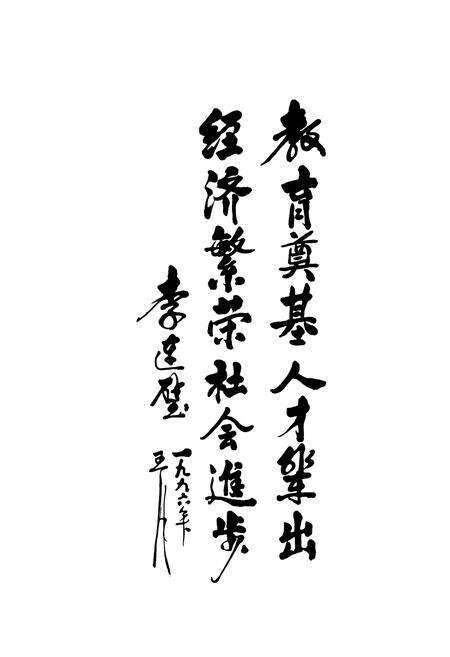 教育奠基人才辈出
经济繁荣社会進步
李连璧
一九九六年
五月